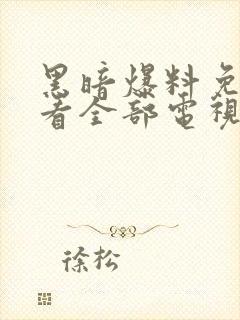 黑暗爆料免
看全部電視
徐松